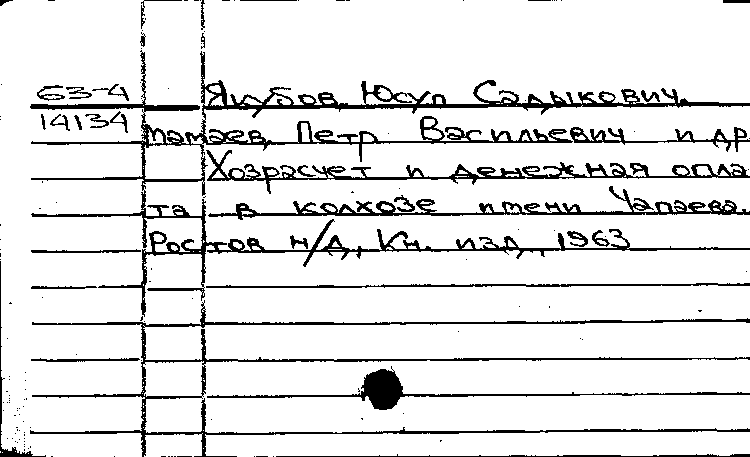 63-4 Якубов Юсуп Садыкович.
14134 Мамаев, Петр Васильевич и др
Хозрасчет и денежная опла
та в колхозе имени Чапаева.
Ростов н/Д, Кн. изд., 1963